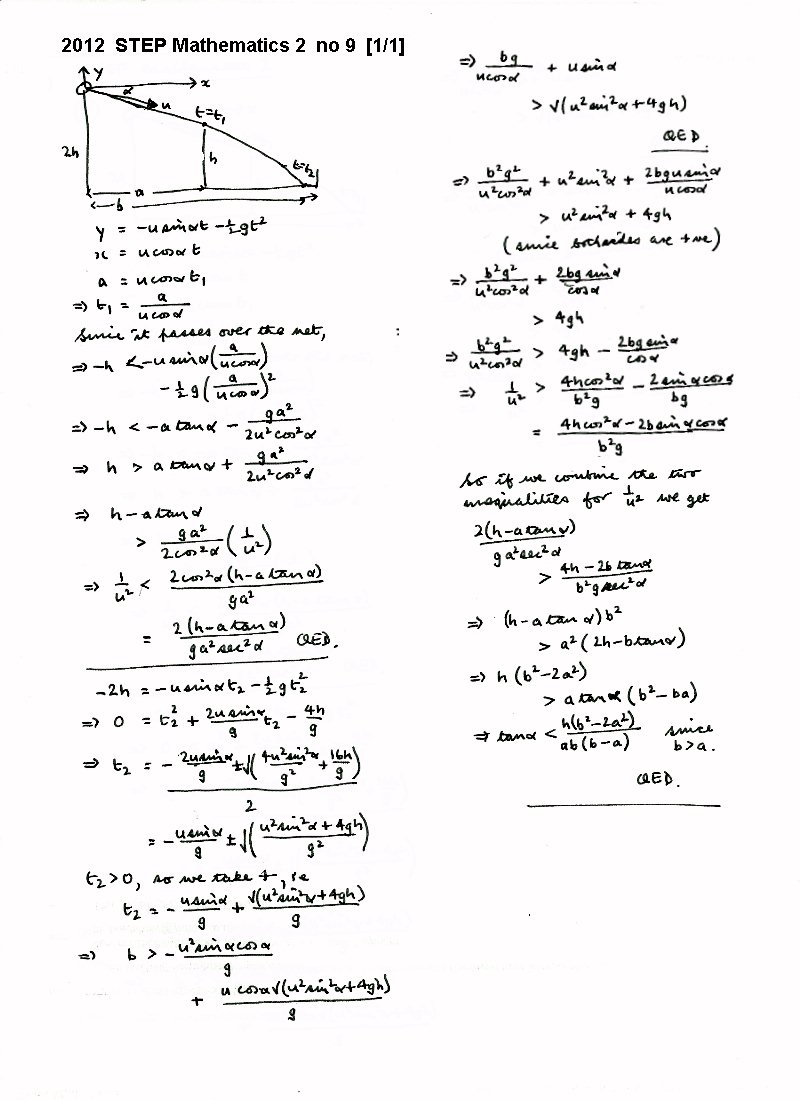 2012 STEP Mathematics 2 no 9 [1/1]
y
x
α
u
t=t₁
2h
h
t=t₂
a
b
y = -u sinα t - ½gt²
x = u cosα t
a = u cosα t₁
⇒ t₁ = a/(u cosα)
Since it passes over the net, :
⇒ -h < -u sinα (a/(u cosα))
- ½ g (a/(u cosα))²
⇒ -h < -a tanα - ga²/(2u²cos²α)
⇒ h > a tanα + ga²/(2u²cos²α)
⇒ h - a tanα
> ga²/(2cos²α) (1/u²)
⇒ 1/u² < 2cos²α (h - a tanα)/(ga²)
= 2(h - a tanα)/(ga² sec²α) QED.
-2h = -u sinα t₂ - ½gt₂²
⇒ 0 = t₂² + (2u sinα/g) t₂ - 4h/g
⇒ t₂ = (-2u sinα/g ± √(4u²sin²α/g² + 16h/g))/2
= -u sinα/g ± √((u²sin²α + 4gh)/g²)
t₂ > 0, so we take +, ie
t₂ = -u sinα/g + √(u²sin²α + 4gh)/g
⇒ b > -u² sinα cosα/g
+ u cosα √(u²sin²α + 4gh)/g
⇒ bg/(u cosα) + u sinα
> √(u²sin²α + 4gh)
QED.
⇒ b²g²/(u²cos²α) + u²sin²α + 2bgu sinα/(u cosα)
> u²sin²α + 4gh
(since both sides are +ve)
⇒ b²g²/(u²cos²α) + 2bg sinα/cosα
> 4gh
⇒ b²g²/(u²cos²α) > 4gh - 2bg sinα/cosα
⇒ 1/u² > 4hcos²α/(b²g) - 2 sinα cosα/(bg)
= (4hcos²α - 2b sinα cosα)/(b²g)
So if we combine the two
inequalities for 1/u² we get
2(h - a tanα)/(ga² sec²α)
> (4h - 2b tanα)/(b²g sec²α)
⇒ (h - a tanα) b²
> a² (2h - b tanα)
⇒ h (b² - 2a²)
> a tanα (b² - ba)
⇒ tanα < h(b² - 2a²)/(ab(b - a)) since
b > a.
QED.